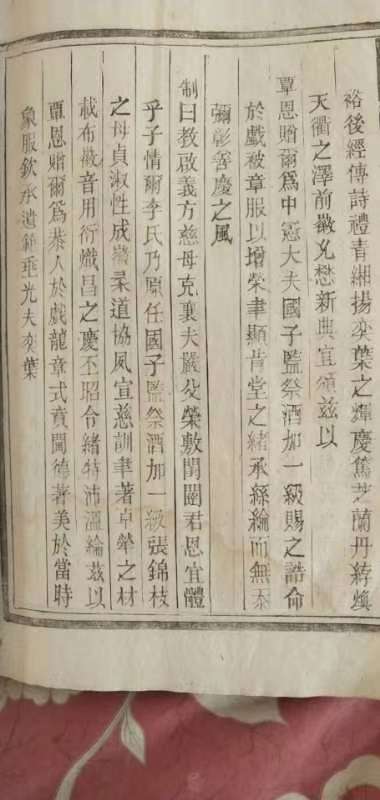 裕後經傳詩禮青緗揚奕葉之輝慶篤芝蘭丹綍煥
天衢之澤前徽允懋新典宜頒茲以
覃恩贈爾為中憲大夫國子監祭酒加一級賜之誥命
於戲被章服以增榮聿顯肯堂之緒承絲綸而無忝
彌彰善慶之風
制曰教啟義方慈母克襄夫嚴父榮敷閨閫君恩宜體
乎子情爾李氏乃原任國子監祭酒加一級張錦枝
之母貞淑性成徽柔道協夙宣慈訓聿著卓犖之材
載布徽音用衍熾昌之慶丕昭令緒特沛溫綸茲以
覃恩贈爾為恭人於戲龍章式賁閫德著美於當時
象服欽承遺範垂光夫奕葉